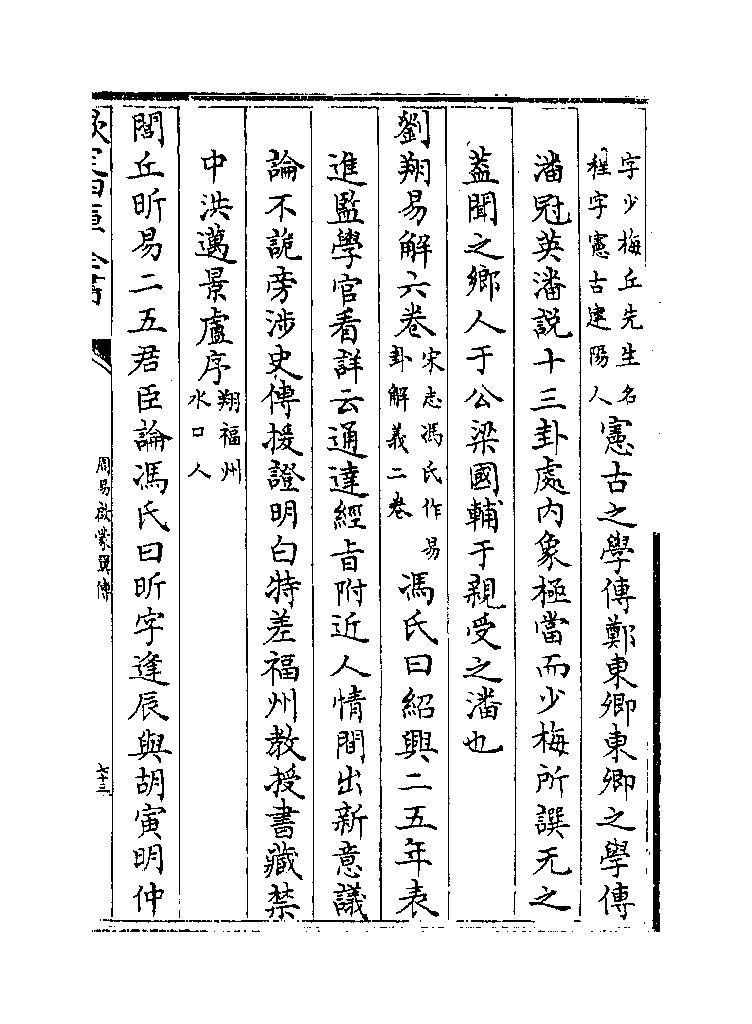 字少梅丘先生名
程字憲古建陽人憲古之學傳鄭東卿東卿之學傳
潘冠英潘説十三卦處内象極當而少梅所譔无之
葢聞之鄉人于公梁國輔于親受之潘也
劉翔易解六卷宋志馮氏作易
卦解義二卷馮氏曰紹興二五年表
進監學官看詳云通達經㫖附近人情間出新意議
論不詭旁涉史傳援證明白特差福州教授書藏禁
中洪邁景盧序翔福州
水口人
閭丘昕易二五君臣論馮氏曰昕字逢辰與胡寅明仲
欽定四庫全書
周易啟蒙翼傳
六十三